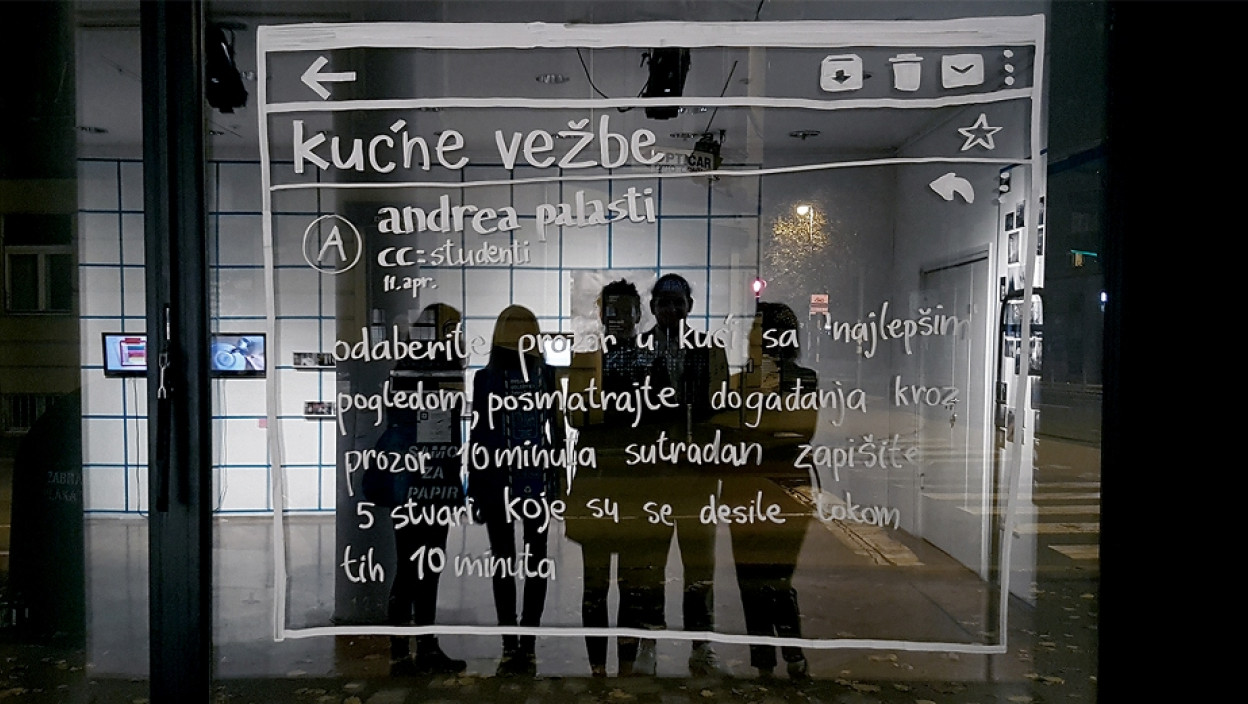 kućne vežbe
OPTIČAR
A
andrea palasti
cc: studenti
11.apr.
odaberite prozor u kući sa najlepšim
pogledom, posmatrajte događanja kroz
prozor 10 minuta sutradan zapišite
SAMO
ZA
PAPIR
5 stvari koje su se desile tokom
tih 10 minuta